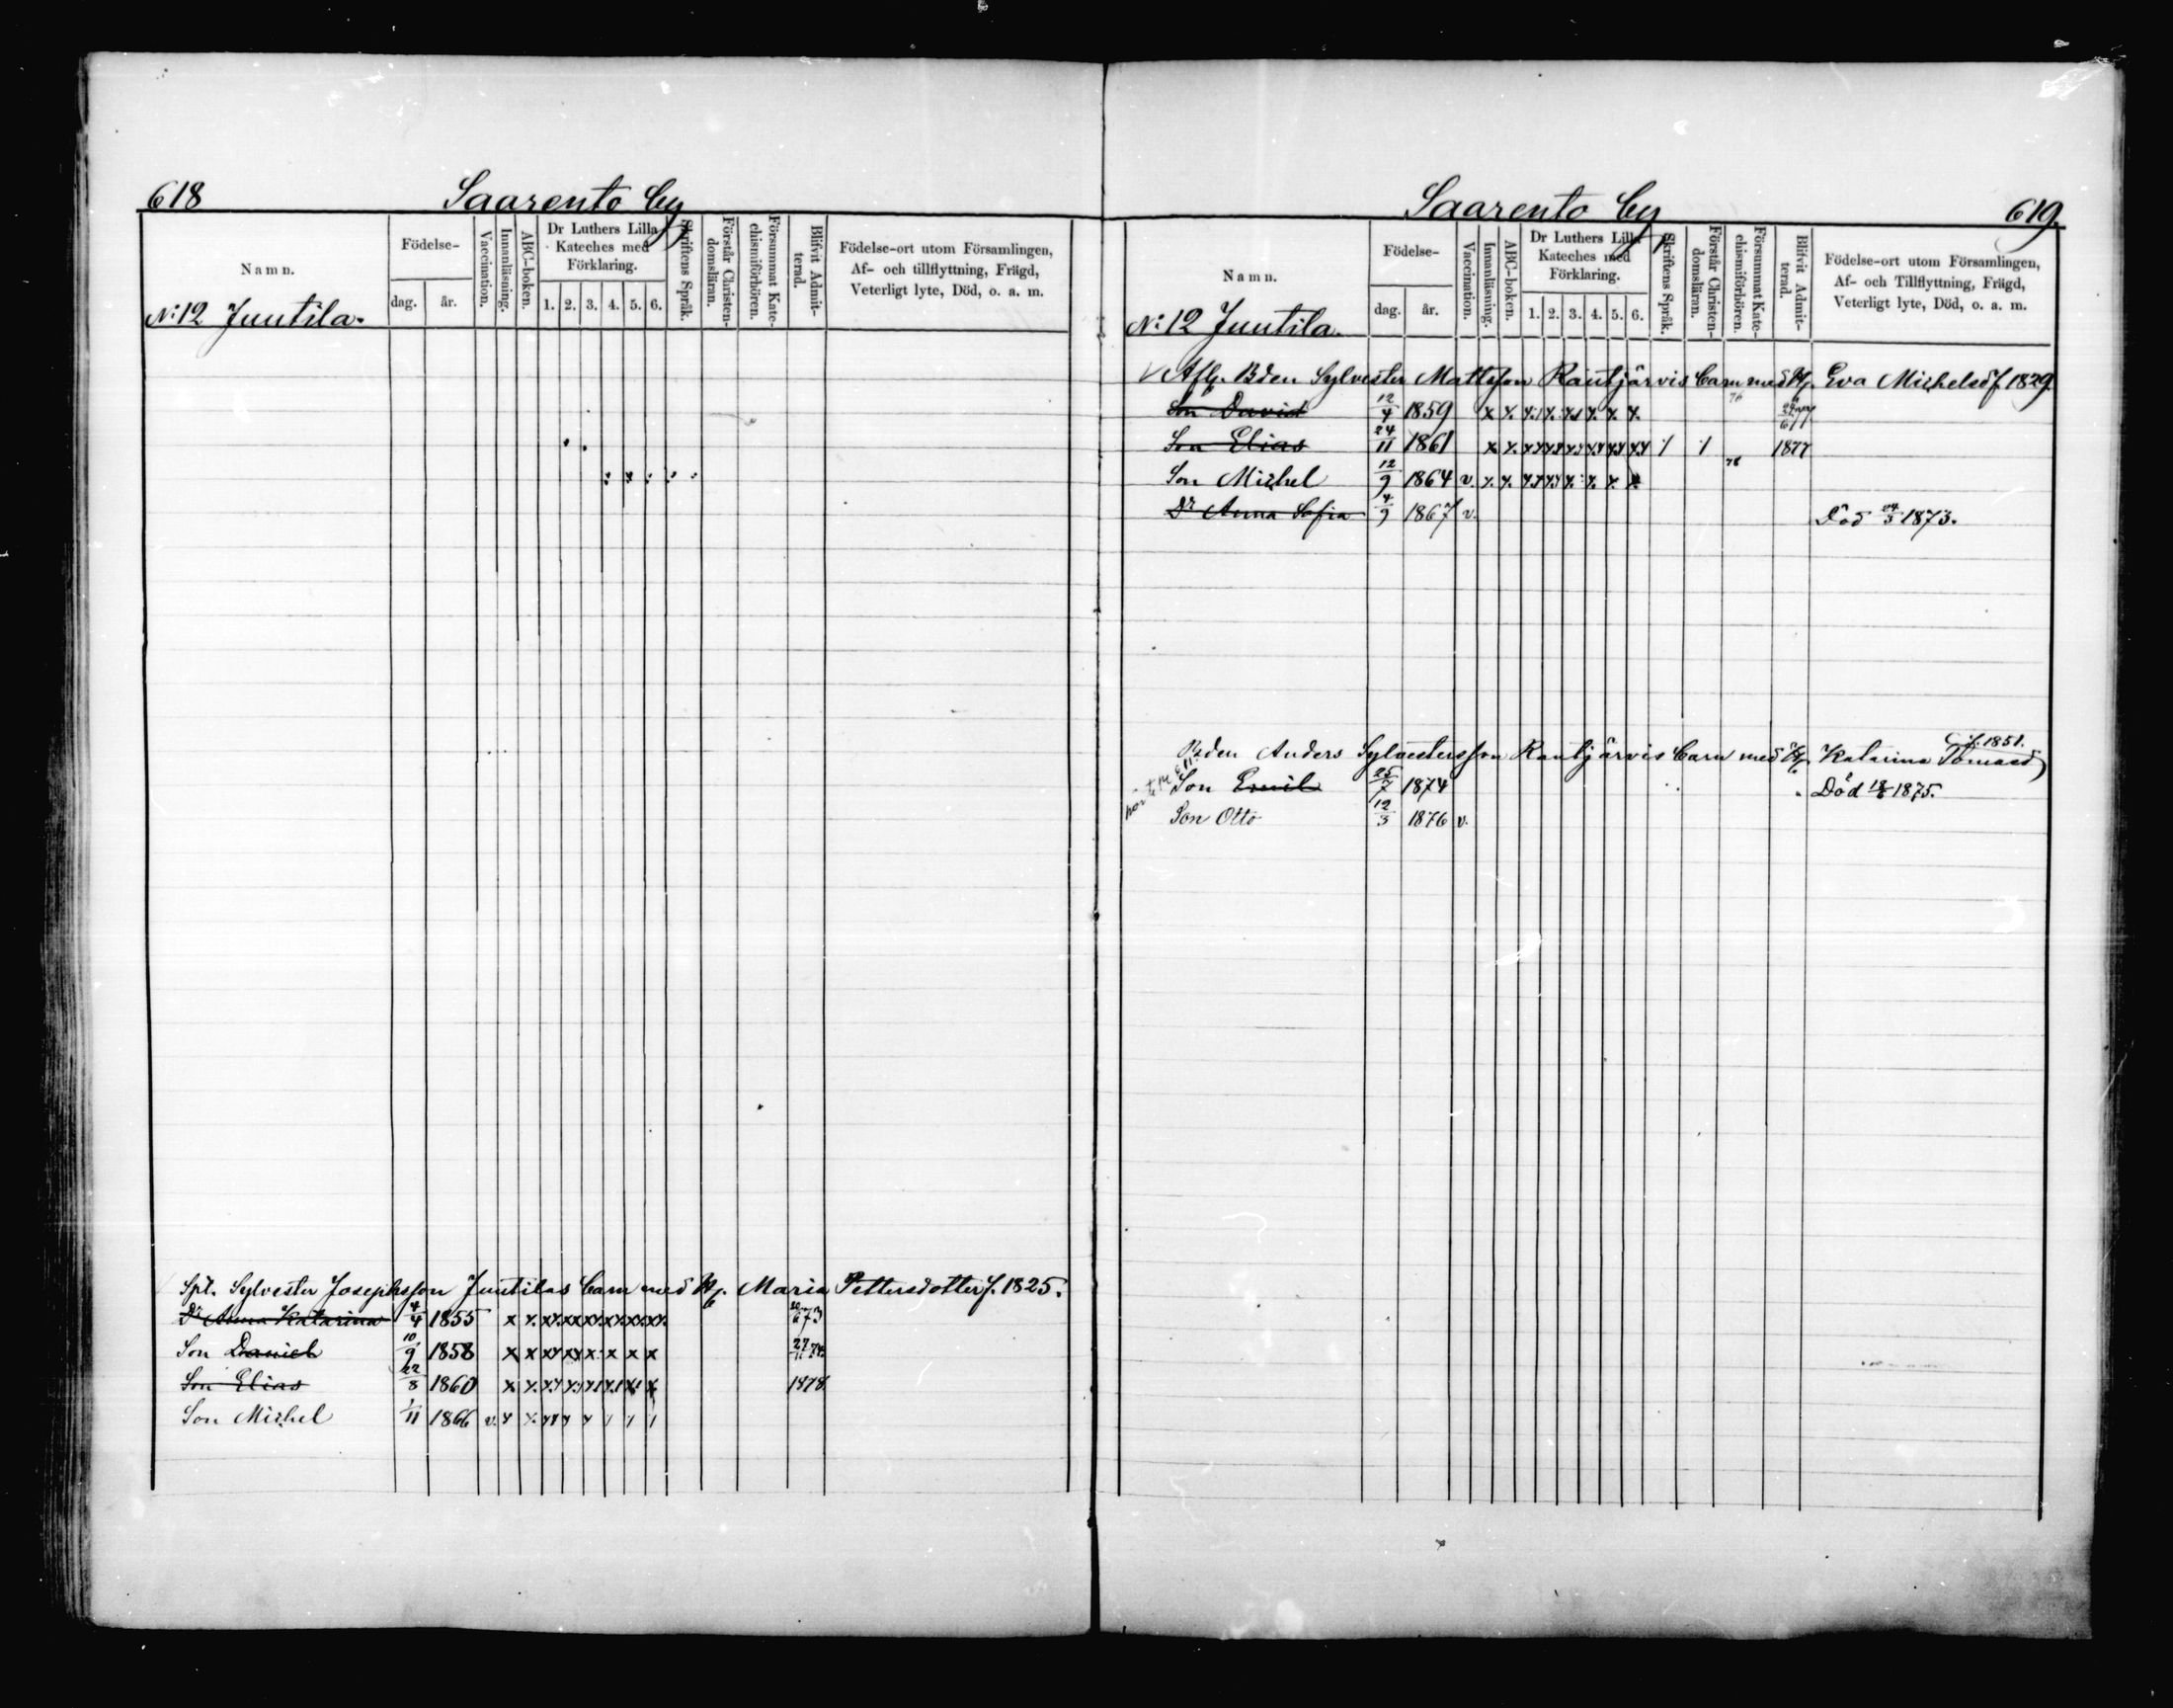 618
Saarento by
Namn.
Födelse-
dag.
år.
Vaccination.
Innanläsning.
ABC-boken.
Dr Luthers Lilla
Kateches med
Förklaring.
1. 2. 3. 4. 5. 6.
Skriftens Språk.
Förstår Christen-
domsläran.
Försummat Kate-
chismiförhören.
Blifvit Admit-
terad.
Födelse-ort utom Församlingen,
Af- och tillflyttning, Frägd,
Veterligt lyte, Död, o. a. m.
N:12 Juutila.
Spl. Sylvester Josephsson Juutilas barn med H. Maria Pettersdotter f. 1825.
Dr Anna Katarina 4/4 1855 673
Son Daniel 10/9 1858
Son Elias 22/8 1860 1878
Son Michel 1/11 1866 v.
Saarento by
619.
Namn.
Födelse-
dag.
år.
Vaccination.
Innanläsning.
ABC-boken.
Dr Luthers Lilla
Kateches med
Förklaring.
1. 2. 3. 4. 5. 6.
Skriftens Språk.
Förstår Christen-
domsläran.
Försummat Kate-
chismiförhören.
Blifvit Admit-
terad.
Födelse-ort utom Församlingen,
Af- och Tillflyttning, Frägd,
Veterligt lyte, Död, o. a. m.
N:12 Juutila.
Afl. Bden Sylvester Mattsson Rautjärvis barn med H. Eva Michelsd f. 1829.
Son David 12/4 1859
Son Elias 24/11 1861 1877
Son Michel 12/9 1864 v.
Dr Anna Sofia 4/9 1867 v. Död 1873.
f. 1851.
Bden Anders Sylvestersson Rautjärvis barn med H. Katarina Tomasd
Son Emil 25/7 1874 Död 1875.
Son Otto 12/3 1876 v.